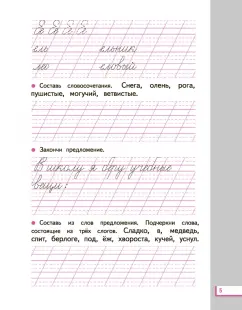 ель ельник
ело еловый
Составь словосочетания. Снега, олень, рога,
пушистые, могучий, ветвистые.
Закончи предложение.
В школу я беру учебные
вещи:
Составь из слов предложения. Подчеркни слова,
состоящие из трёх слогов. Сладко, в, медведь,
спит, берлоге, под, ёж, хвороста, кучей, уснул.
5